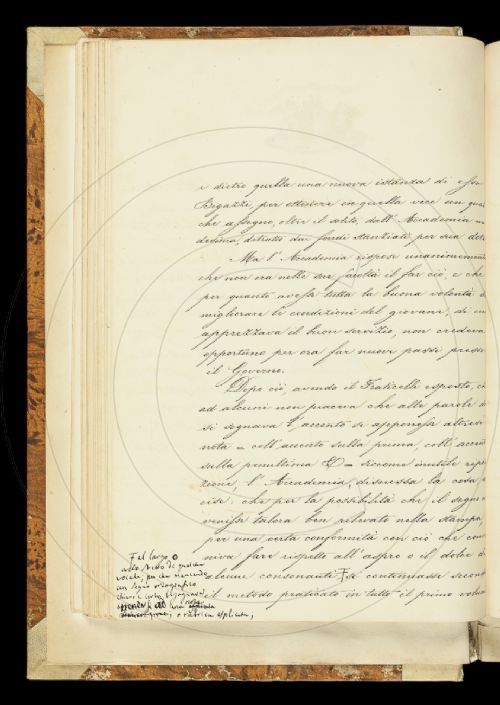 e dietro quella una nuova istanza di esso
Bigazzi, per ottenere in quella vece un qual
che assegno, oltre il solito, dall'Accademia me
desima, detratto dai fondi stanziati per sua dote
Ma l'Accademia rispose unanimemente
che non era nelle sue facoltà il far ciò e che
per quanto avesse tutta la buona volontà di
migliorare le condizioni del giovane, di cui
apprezzava il buon servizio, non credeva
opportuno per ora far nuovi passi presso
il Governo.
Dopo ciò, avendo il Fraticelli esposto, che
ad alcuni non piaceva che alle parole d
si segnava l'accento si apponesse altresì
nota = coll'accento sulla prima, coll'accento
sulla penultima E = siccome inutile ripe
zione, l'Accademia, discussa la cosa,
cise che per la possibilità che il segno
venisse talora ben rilevato nella stampa,
per una certa conformità con ciò che con
niva fare rispetto all'aspro o il dolce di
alcune consonanti si continuasse secondo
il metodo praticato in tutto il primo volu
F al largo o
allo stretto di qualche
vocale,
un segno ortografico